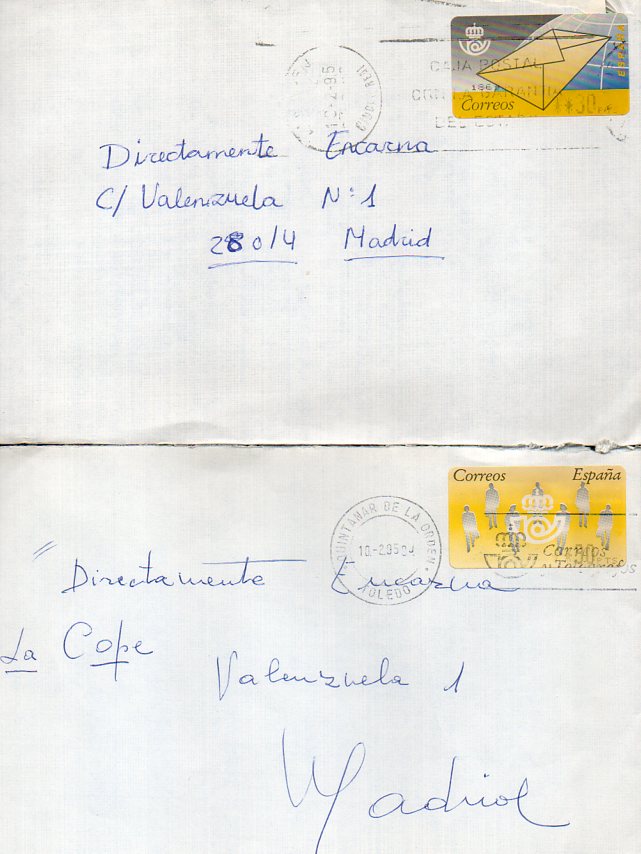 ESPAÑA
CAJA POSTAL
CON LA GARANTIA
DEL ESTADO
Correos
*30
Directamente Encarna
C/ Valenzuela Nº 1
28014 Madrid
Correos España
QUINTANAR DE LA ORDEN
TOLEDO
Correos
y Telégrafos
Directamente Encarna
La Cope
Valenzuela 1
Madrid